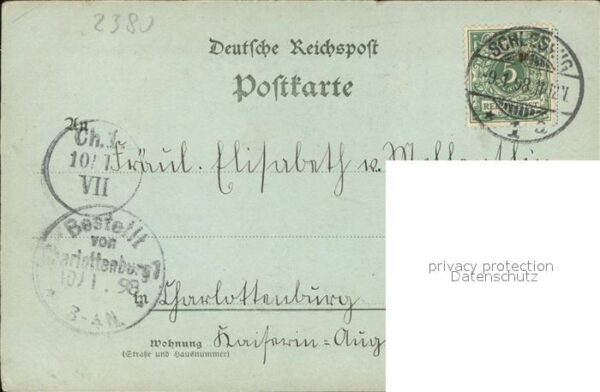 2380
Deutsche Reichspost
Postkarte
SCHLESWIG
5
9.1.98
1 a
An
Ch. 1.
10/1
VII
Fräul. Elisabeth v.
Bestellt
von
Charlottenburg 1
10/1. 98
3-4 N.
in Charlottenburg
Wohnung Kaiserin=Aug
(Straße und Hausnummer)
privacy protection
Datenschutz